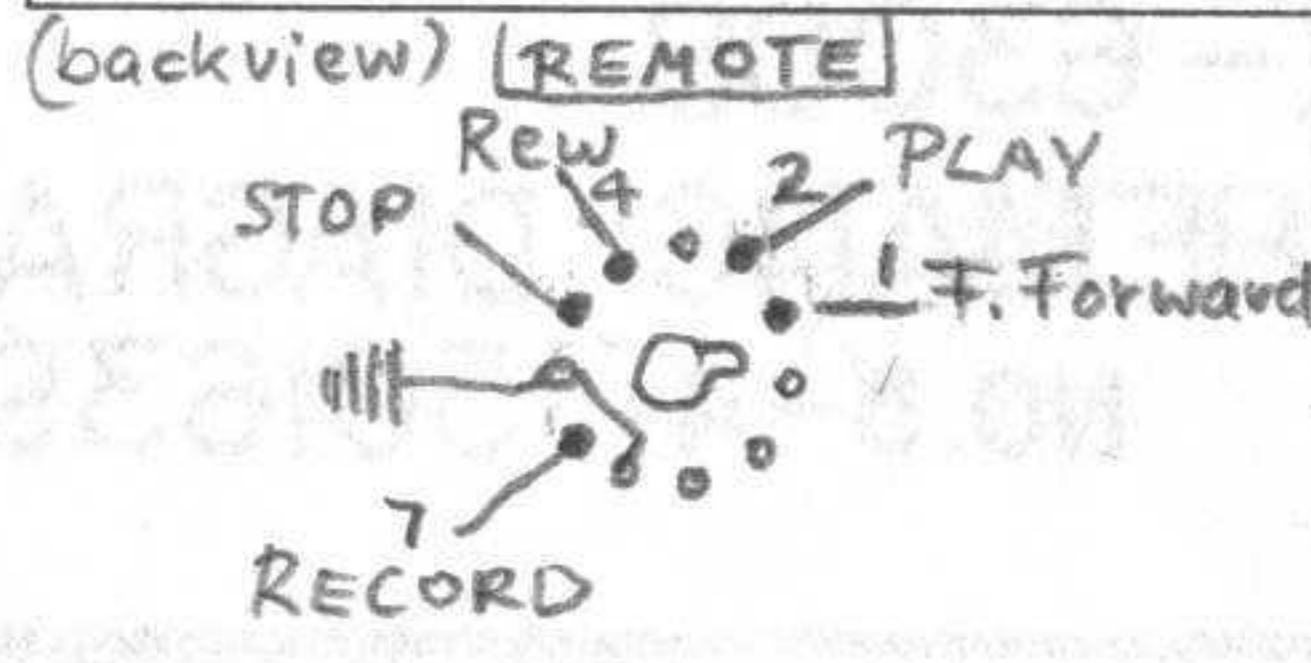 (backview) REMOTE
Rew
4
2
PLAY
STOP
1
F. Forward
7
RECORD